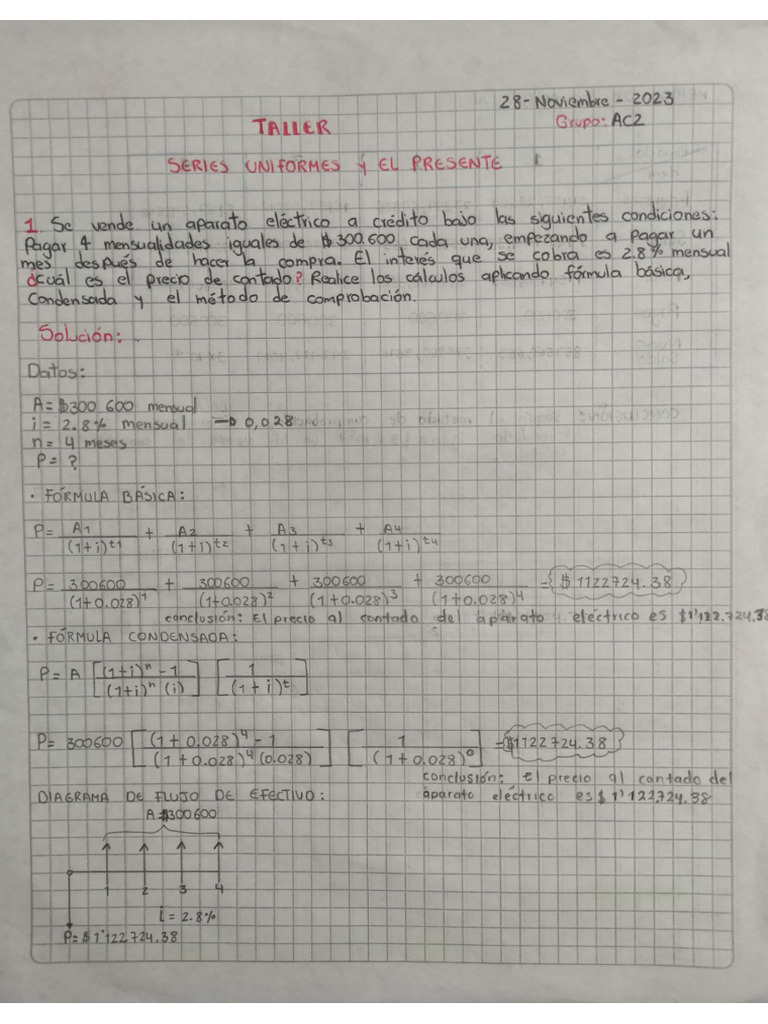 28-Noviembre-2023
TALLER
Grupo: AC2
SERIES UNIFORMES Y EL PRESENTE
1. Se vende un aparato eléctrico a crédito bajo las siguientes condiciones:
Pagar 4 mensualidades iguales de $300.600 cada una, empezando a pagar un
mes después de hacer la compra. El interés que se cobra es 2.8% mensual
¿cuál es el precio de contado? Realice los cálculos aplicando fórmula básica,
Condensada y el método de comprobación.
Solución:
Datos:
A= $300 600 mensual
i = 2.8% mensual → 0,028
n = 4 meses
P= ?
• FÓRMULA BÁSICA:
P= A1/(1+i)^t1 + A2/(1+i)^t2 + A3/(1+i)^t3 + A4/(1+i)^t4
P= 300600/(1+0.028)^1 + 300600/(1+0.028)^2 + 300600/(1+0.028)^3 + 300600/(1+0.028)^4 = $1122724.38
conclusión: El precio al contado del aparato eléctrico es $1'122.724.38
• FÓRMULA CONDENSADA:
P= A [(1+i)^n - 1/(1+i)^n (i)] [1/(1+i)^t]
P= 300600 [(1+0.028)^4 - 1/(1+0.028)^4 (0.028)] [1/(1+0.028)^0] = $1122724.38
conclusión: El precio al contado del
aparato eléctrico es $1'122.724.38
DIAGRAMA DE FLUJO DE EFECTIVO:
A=$300600
1 2 3 4
i = 2.8%
P= $1'122724.38